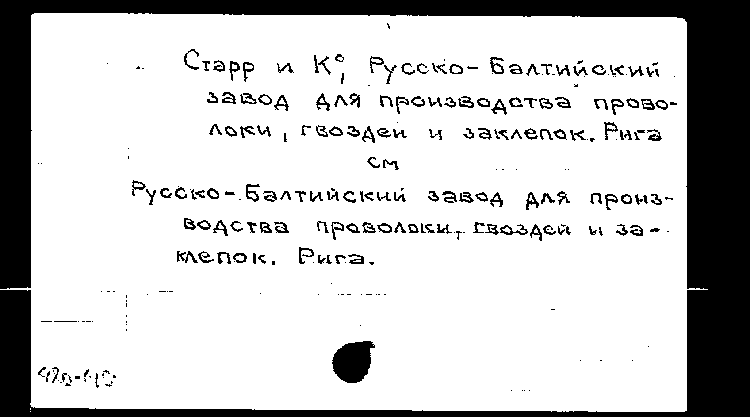 Старр и К°, Русско-Балтийский
завод для производства прово-
локи, гвоздей и заклепок. Рига
см
Русско-Балтийский завод для произ-
водства проволоки, гвоздей и за-
клепок. Рига.